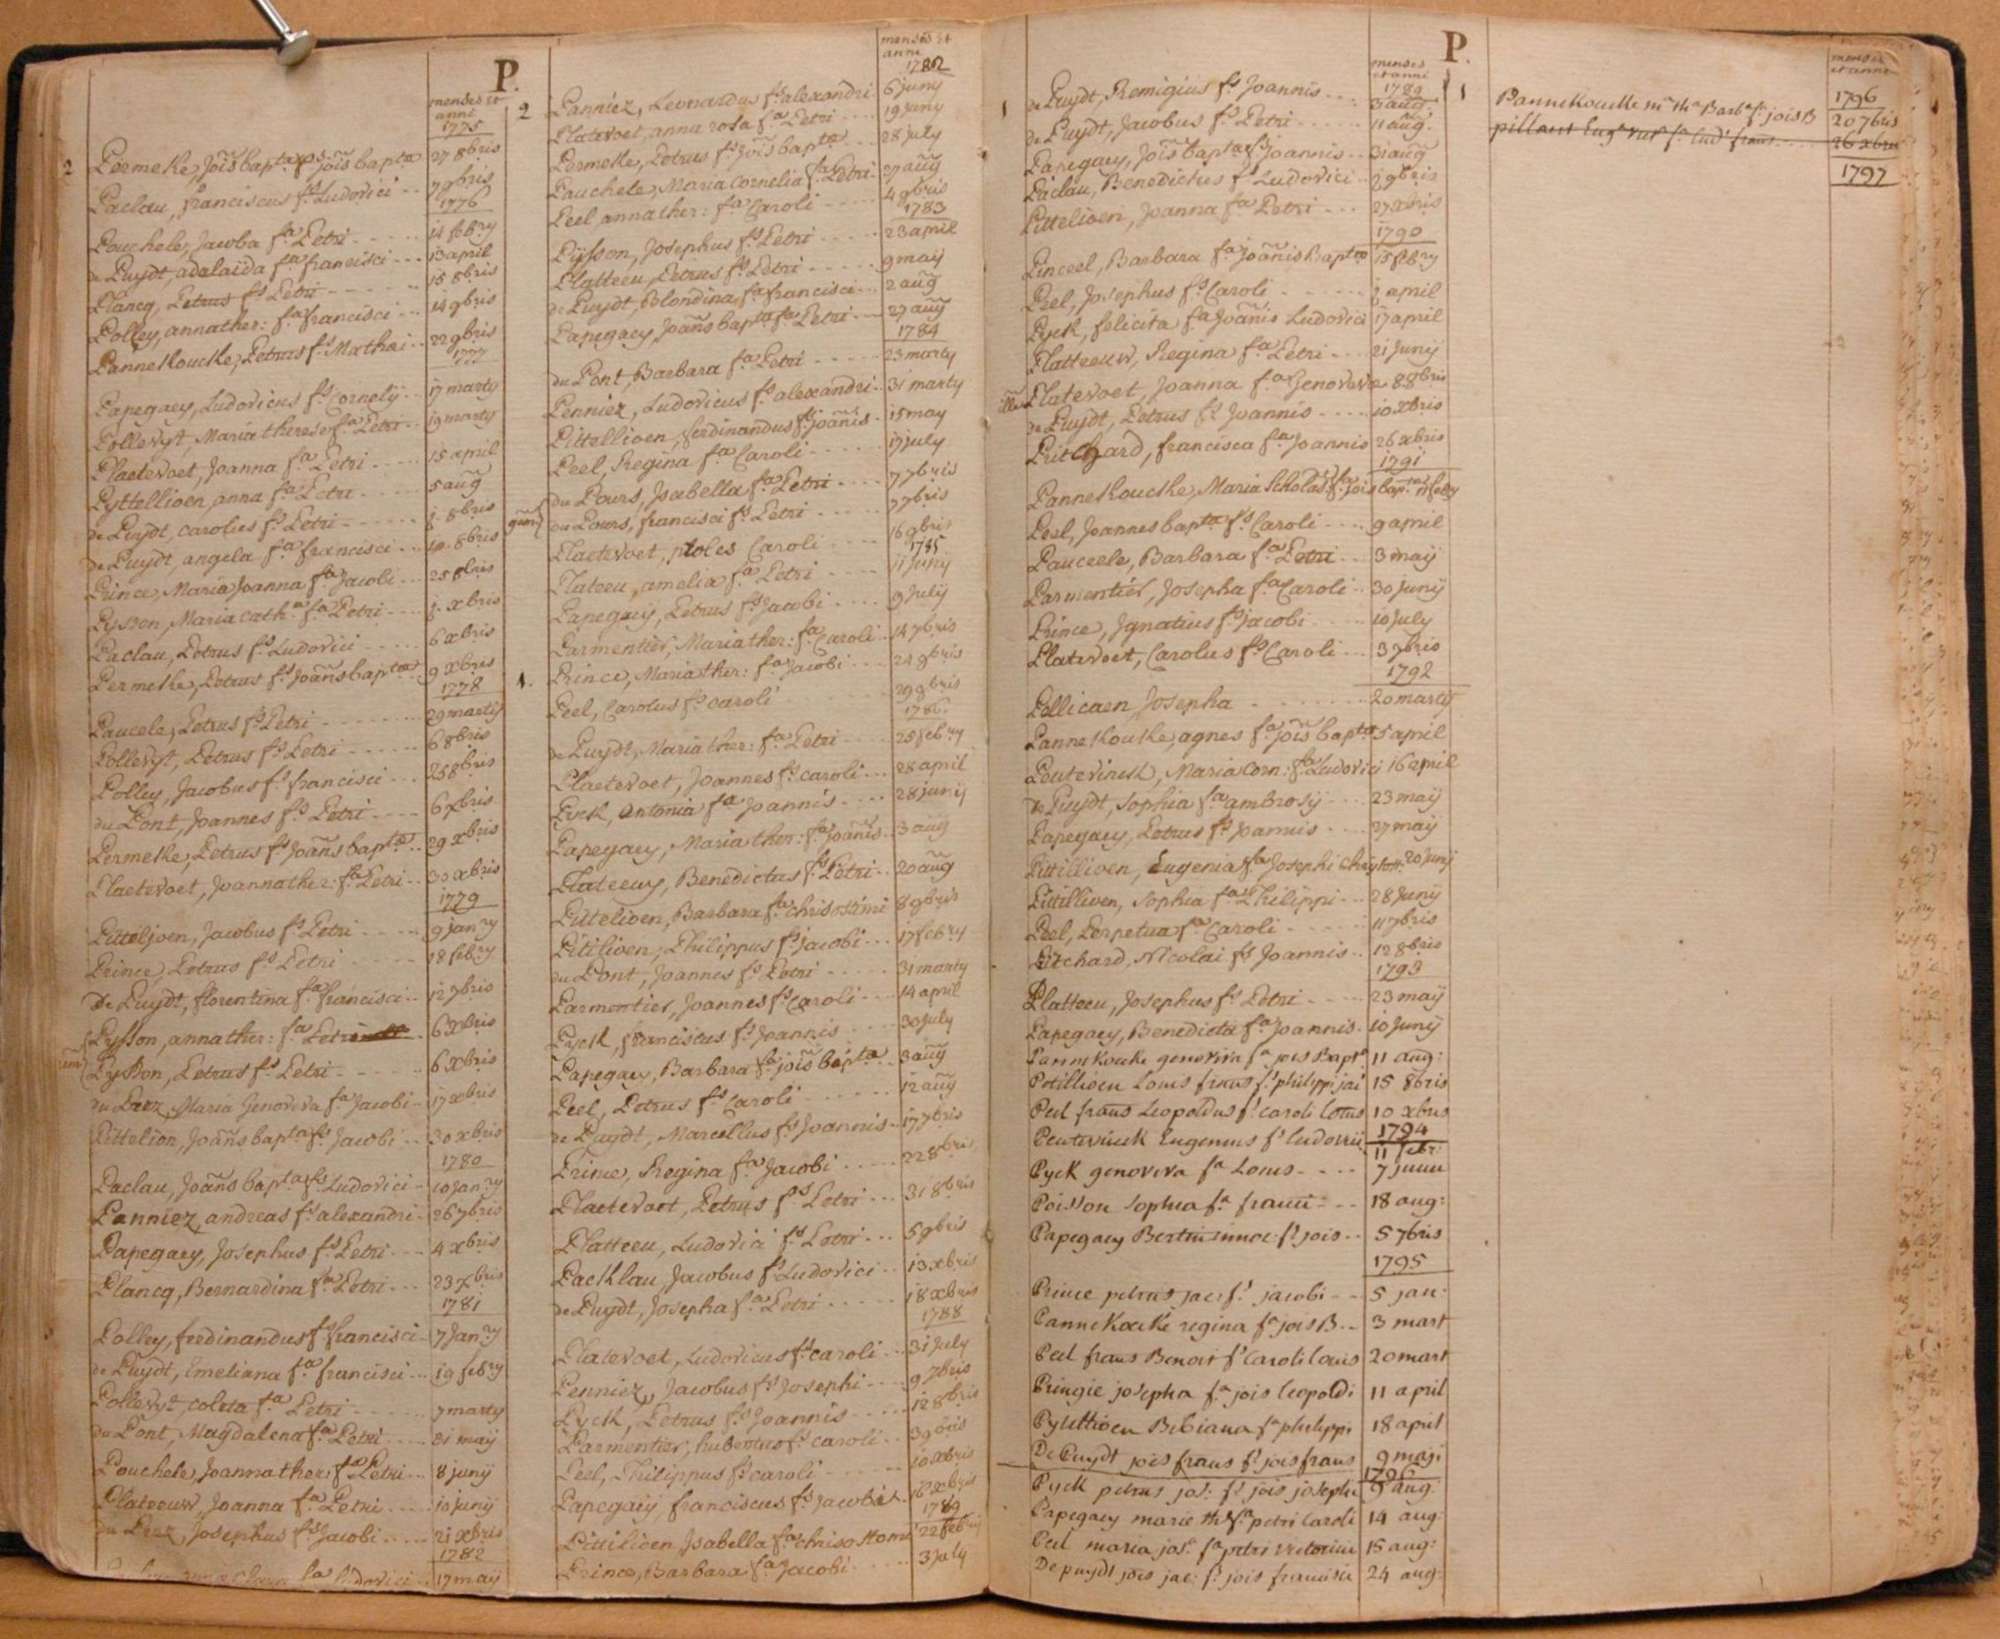 P.
menses et
anni
1775
2
Permeke, Joñsbapta fs joñs bapta 27 8bris
Paclau franciscus fs Ludovici 7 9bris
1776
Pouchele, Jacoba fa Petri 14 febry
de Puydt, adalaida fa francisci 13 april
Plancq, Petrus fs Petri 15 8bris
Polley, annather: fa francisci 14 9bris
Pannekoucke, Petrus fs Mathai 22 9bris
1777
Papegaey, Ludovicus fs Cornely 17 marty
Pollevyt, Maria theresa fa Petri 19 marty
Plaetevoet, Joanna fa Petri 15 april
Pyttellioen, anna fa Petri 5 aug
de Puydt, carolus fs Petri j. 8bris
de Puydt, angela fa francisci 10. 8bris
Prince, Maria Joanna fa Jacobi 25 8bris
Pysson, Maria cath:na fa Petri j. xbris
Paclau, Petrus fs Ludovici 6 xbris
Permeke, Petrus fs Joañs bapta 9 xbris
1778
Paucele, Petrus fs Petri 29 martij
Pollevyt, Petrus fs Petri 6 8bris
Polley, Jacobus fs francisci 25 8bris
du Pont, Joannes fs Petri 6 xbris
Permeke, Petrus fs Joañs bapta 29 xbris
Plaetevoet, Joannather: fa Petri 30 xbris
1779
Pitteljoen, Jacobus fs Petri 9 janry
Prince, Petrus fs Petri 18 febry
De Puydt, florentina fa francisci 12 7bris
Pysson, annather: fa Petri 6 xbris
Pysson, Petrus fs Petri 6 xbris
du Prez, Maria Genoveva fa Jacobi 17 xbris
Pittelion, Joañs bapta fs Jacobi 30 xbris
1780
Paclau, Joañs bapta fs Ludovici 10 janry
Panniez, andreas fs alexandri 26 7bris
Papegaey, Josephus fs Petri 4 xbris
Plancq, Bernardina fa Petri 23 xbris
1781
Polley, ferdinandus fs francisci 7 Janry
de Puydt, Emeliana fa francisci 19 febry
Pollevyt, coleta fa Petri 7 marty
du Pont, Magdalena fa Petri 31 maij
Pouchele, Joannather: fa Petri 8 junij
Plateeuw, Joanna fa Petri 10 junij
du Prez, Josephus fs Jacobi 21 xbris
1782
fa Ludovici 17 maij
menses et
anni
1782
2
Panniez, Leonardus fs alexandri 6 juny
Platevoet, anna rosa fa Petri 19 juny
Permeke, Petrus fs Joñs bapta 28 july
Pauchele, Maria Cornelia fa Petri 27 aug
Peel, annather: fa Caroli 4 9bris
1783
Pysson, Josephus fs Petri 23 april
Platteeu, Petrus fs Petri 9 may
de Puydt, Blondina fa francisci 2 aug
Papegaey, Joañs bapta fs Petri 27 aug
1784
du Pont, Barbara fa Petri 23 marty
Penniez, Ludovicus fs alexandri 31 marty
Pittellioen, ferdinandus fs Joañis 15 may
Peel, Regina fa Caroli 17 july
du Pours, Isabella fa Petri 7 7bris
du Pours, francisci fs Petri 7 7bris
Plaetevoet, ploles Caroli 16 9bris
1785
Plateeu, amelia fa Petri 11 juny
Papegaey, Petrus fs Jacobi 9 July
Parmentier, Maria ther: fa Caroli 14 7bris
1. Prince, Maria ther: fa Jacobi 24 9bris
Peel, Carolus fs caroli 29 9bris
1786
de Puydt, Maria ther: fa Petri 25 febry
Plaetevoet, Joannes fs caroli 28 april
Pyck, Antonia fa Joannis 28 junij
Papegaey, Maria ther: fa Joañis 3 aug
Plateeuw, Benedictus fs Petri 20 aug
Pittelioen, Barbara fa chrisostimi 8 9bris
Pitilioen, Philippus fs jacobi 17 febry
du Pont, Joannes fs Petri 31 marty
Parmentier, Joannes fs Caroli 14 april
Pyck, franciscus fs Joannis 30 july
Papegaey, Barbara fa joñs bapta 3 aug
Peel, Petrus fs Caroli 12 aug
de Puydt, Marcellus fs Joannis 17 7bris
Prince, Regina fa Jacobi 22 8bris
Plaetevoet, Petrus fs Petri 31 8bris
Platteeu, Ludovici fs Petri 5 9bris
Packlau, Jacobus fs Ludovici 13 xbris
de Puydt, Josepha fa Petri 18 xbris
1788
Platevoet, Ludovicus fs caroli 31 July
Penniez, Jacobus fs Josephi 9 7bris
Pyck, Petrus fs Joannis 12 8bris
Parmentier, hubertus fs caroli 3 9bris
Peel, Philippus fs caroli 10 xbris
Papegaiy, franciscus fs Jacobi 16 xbris
1789
Pittilioen, Isabella fa chrisostomi 22 febrij
Prince, Barbara fa Jacobi 3 July
P.
menses
et anni
1789
1
de Puydt, Remigius fs Joannis 3 aug
de Puydt, Jacobus fs Petri 11 aug
Papegaey, Joñs bapta fs Joannis 31 aug
Paclau, Benedictus fs Ludovici 2 9bris
Pittelioen, Joanna fa Petri 27 xbris
1790
Pinceel, Barbara fa Joañis Bapta 15 febry
Peel, Josephus fs Caroli 2 april
Pyck, felicita fa Joañis Ludovici 17 april
Platteeuw, Regina fa Petri 21 Junij
Platevoet, Joanna fa Genoveva 8 8bris
de Puydt, Petrus fs Joannis 10 xbris
Pritchard, francisca fa Joannis 26 xbris
1791
Pannekoucke, Maria Scholas: fa jois bapta 11 febry
Peel, Joannes bapta fs Caroli 9 april
Pauceele, Barbara fa Petri 3 maij
Parmentier, Josepha fa Caroli 30 Junij
Prince, Ignatius fs jacobi 10 July
Platevoet, Carolus fs Caroli 3 7bris
1792
Pellicaen, Josepha 20 martij
Pannekouke, agnes fa joñs bapta 5 april
Poutevinck, Maria Corn: fa Ludovici 16 april
de Puydt, Sophia fa ambrosij 23 maij
Papegaey, Petrus fs Joannis 27 maij
Pittillioen, Eugenia fa Josephi Chrysost: 20 junij
Pittillioen, Sophia fa Philippi 28 Junij
Peel, Perpetua fa Caroli 11 7bris
Pitchard, Nicolai fs Joannis 12 8bris
1793
Platteeu, Josephus fs Petri 23 maij
Papegaey, Benedicta fa Joannis 10 Junij
Pannekoucke genoviva fa jois Bapt 11 aug:
Petillioen Louis frans fs philippi jac 15 8bris
Peel frans Leopoldus fs caroli Louis 10 xbris
1794
Peutevinck Eugenius fs ludovici 11 febr:
Pyck genoveva fa Louis 7 junii
Poisson Sophia fa franci 18 aug:
Papegaey Bertin innoc: fs jois 5 7bris
1795
Prince petrus jac: fs jacobi 5 jan:
Pannekoucke regina fa jois B 3 mart
Peel frans Benoit fs Caroli louis 20 mart
Pringie josepha fa jois leopoldi 11 april
Pyllittioen Bibiana fa philippi 18 april
De Puydt jois frans fs jois frans 9 maji
1796
Pyck petrus jos: fs jois josephi 9 aug:
Papegaey marie th fa petri Caroli 14 aug:
Peel maria jos: fa petri victorini 15 aug:
De puydt jois jac: fs jois francisci 24 aug:
menses
et anni
1796
1
Pannekoucke m th Barb fa jois B 20 7bris
pillaert Eug fa lud frans 26 xbris
1797